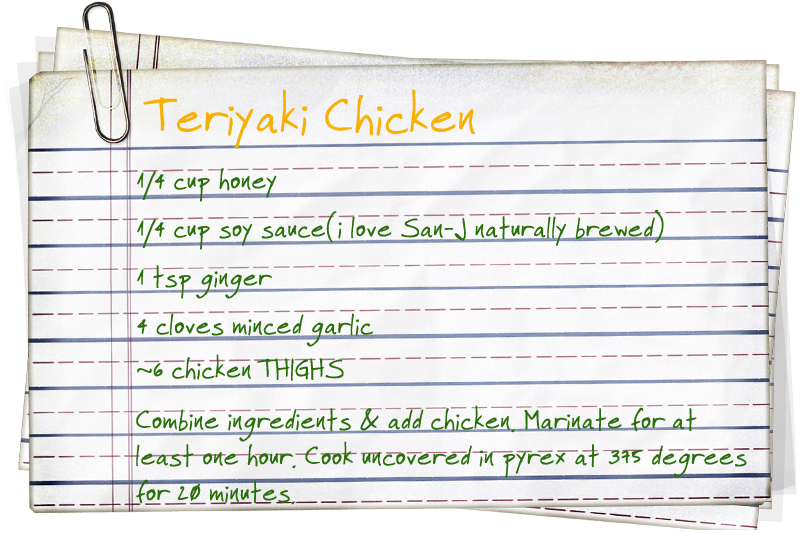 Teriyaki Chicken
1/4 cup honey
1/4 cup soy sauce(i love San-J naturally brewed)
1 tsp ginger
4 cloves minced garlic
~6 chicken THIGHS
Combine ingredients & add chicken. Marinate for at
least one hour. Cook uncovered in pyrex at 375 degrees
for 20 minutes.